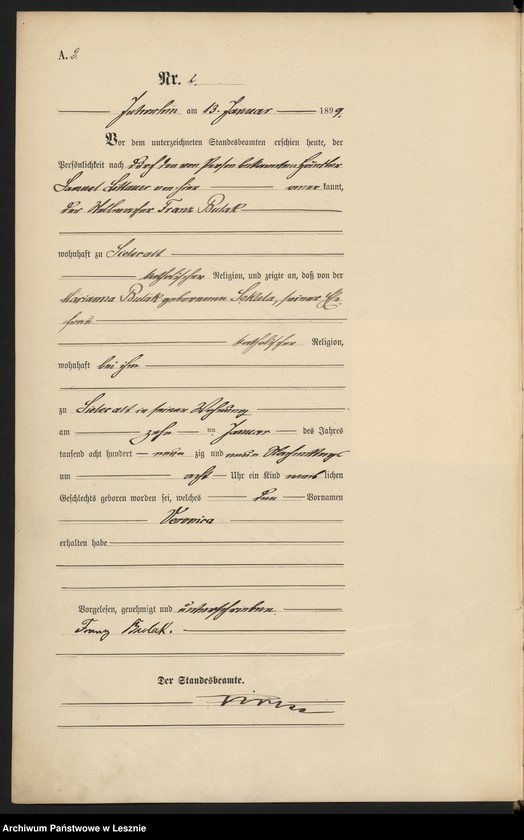 A. 2.
Nr. 2.
Jutroschin am 13. Januar 1899.
Vor dem unterzeichneten Standesbeamten erschien heute, der
Persönlichkeit nach durch den von Person bekannten Händler
Samuel von hier kannt,
der Franz Bulak
wohnhaft zu Sielec alt
katholischer Religion, und zeigte an, daß von der
Marianna Bulak geborenen seiner Ehe-
frau
katholischer Religion,
wohnhaft bei ihm
zu Sielec alt in seiner Wohnung
am zehn ten Januar des Jahres
tausend acht hundert neun zig und neun Nachmittags
um acht Uhr ein Kind weib lichen
Geschlechts geboren worden sei, welches den Vornamen
Veronica
erhalten habe.
Vorgelesen, genehmigt und unterschrieben
Franz Bulak.
Der Standesbeamte.
Archiwum Państwowe w Lesznie